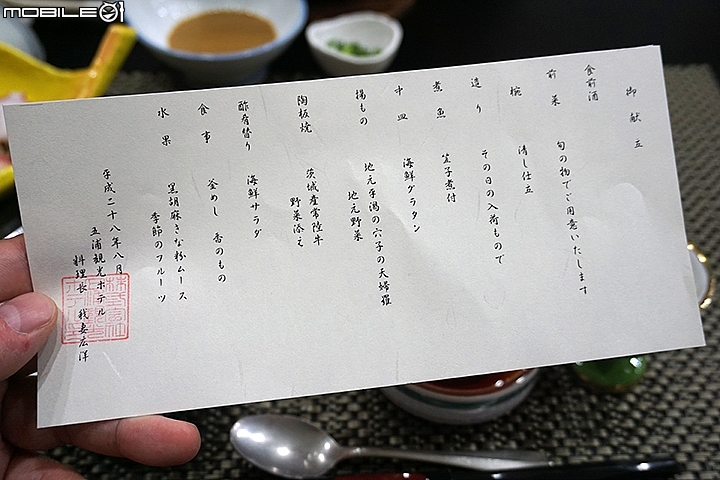 MOBILE01
御献立
食前酒
前菜 旬の物でご用意いたします
椀 清し仕立
造り その日の入荷もので
煮魚 笠子煮付
中皿 海鮮グラタン
揚もの 地元平潟の穴子の天婦羅
地元野菜
陶板焼 茨城産常陸牛
野菜添え
酢肴替り 海鮮サラダ
食事 釜めし 香のもの
水果 黒胡麻きな粉ムース
季節のフルーツ
平成二十八年八月
五浦観光ホテル
料理長 我妻広洋